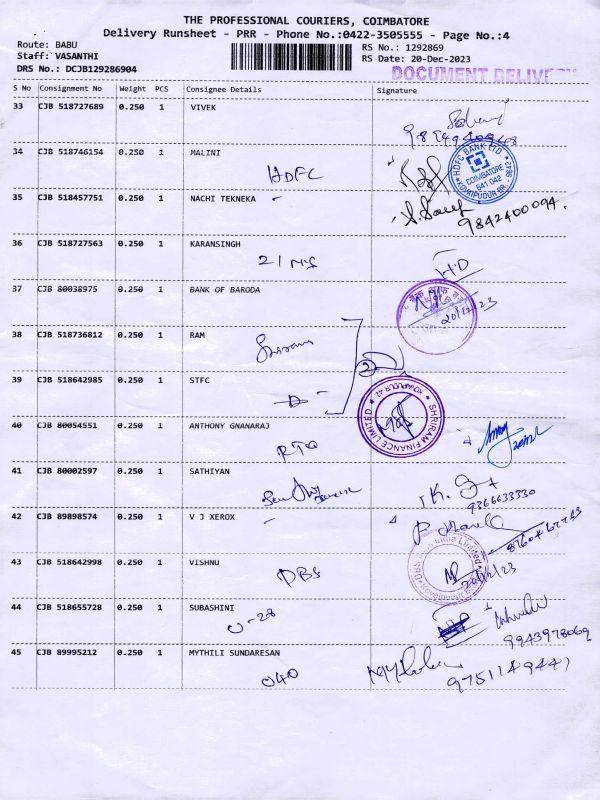 THE PROFESSIONAL COURIERS, COIMBATORE
Delivery Runsheet - PRR - Phone No.:0422-3505555 - Page No.:4
Route: BABU
Staff: VASANTHI
DRS No.: DCJB129286904
RS No.: 1292869
RS Date: 20-Dec-2023
DOCUMENT DELIVE
S No Consignment No Weight PCS Consignee Details Signature
33 CJB 518727689 0.250 1 VIVEK
34 CJB 518746154 0.250 1 MALINI
HDFC
HDFC BANK LTD.
COIMBATORE
641 042
35 CJB 518457751 0.250 1 NACHI TEKNEKA -
9842400094.
36 CJB 518727563 0.250 1 KARANSINGH
HD
37 CJB 80038975 0.250 1 BANK OF BARODA
20/12/23
38 CJB 518736812 0.250 1 RAM
2
39 CJB 518642985 0.250 1 STFC
SHRIRAM FINANCE LIMITED
40 CJB 80054551 0.250 1 ANTHONY GNANARAJ
41 CJB 80002597 0.250 1 SATHIYAN
9366633330
42 CJB 89898574 0.250 1 V J XEROX -
43 CJB 518642998 0.250 1 VISHNU
DBS
India Limited
44 CJB 518655728 0.250 1 SUBASHINI
0-28
9943978069
45 CJB 89995212 0.250 1 MYTHILI SUNDARESAN
040